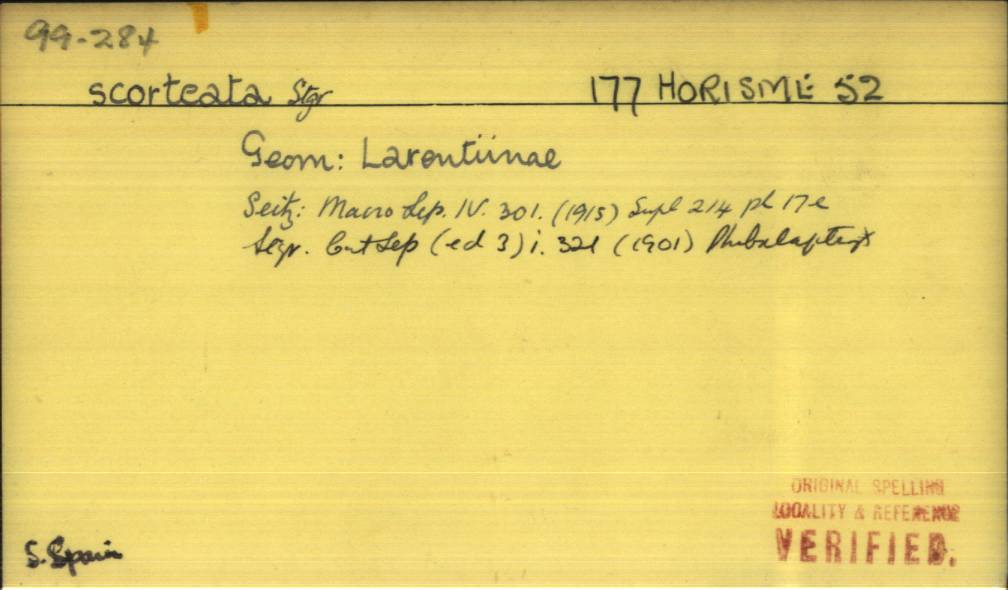 99-284
scorteata Stgr 177 HORISME 52
Geom: Larentiinae
Seitz: Macro Lep. IV. 301. (1915) Supl 214 pl 17e
Stgr. Cat Lep (ed 3) i. 321 (1901) Phibalapteryx
ORIGINAL SPELLING
LOCALITY & REFERENCE
VERIFIED.
S. Spain